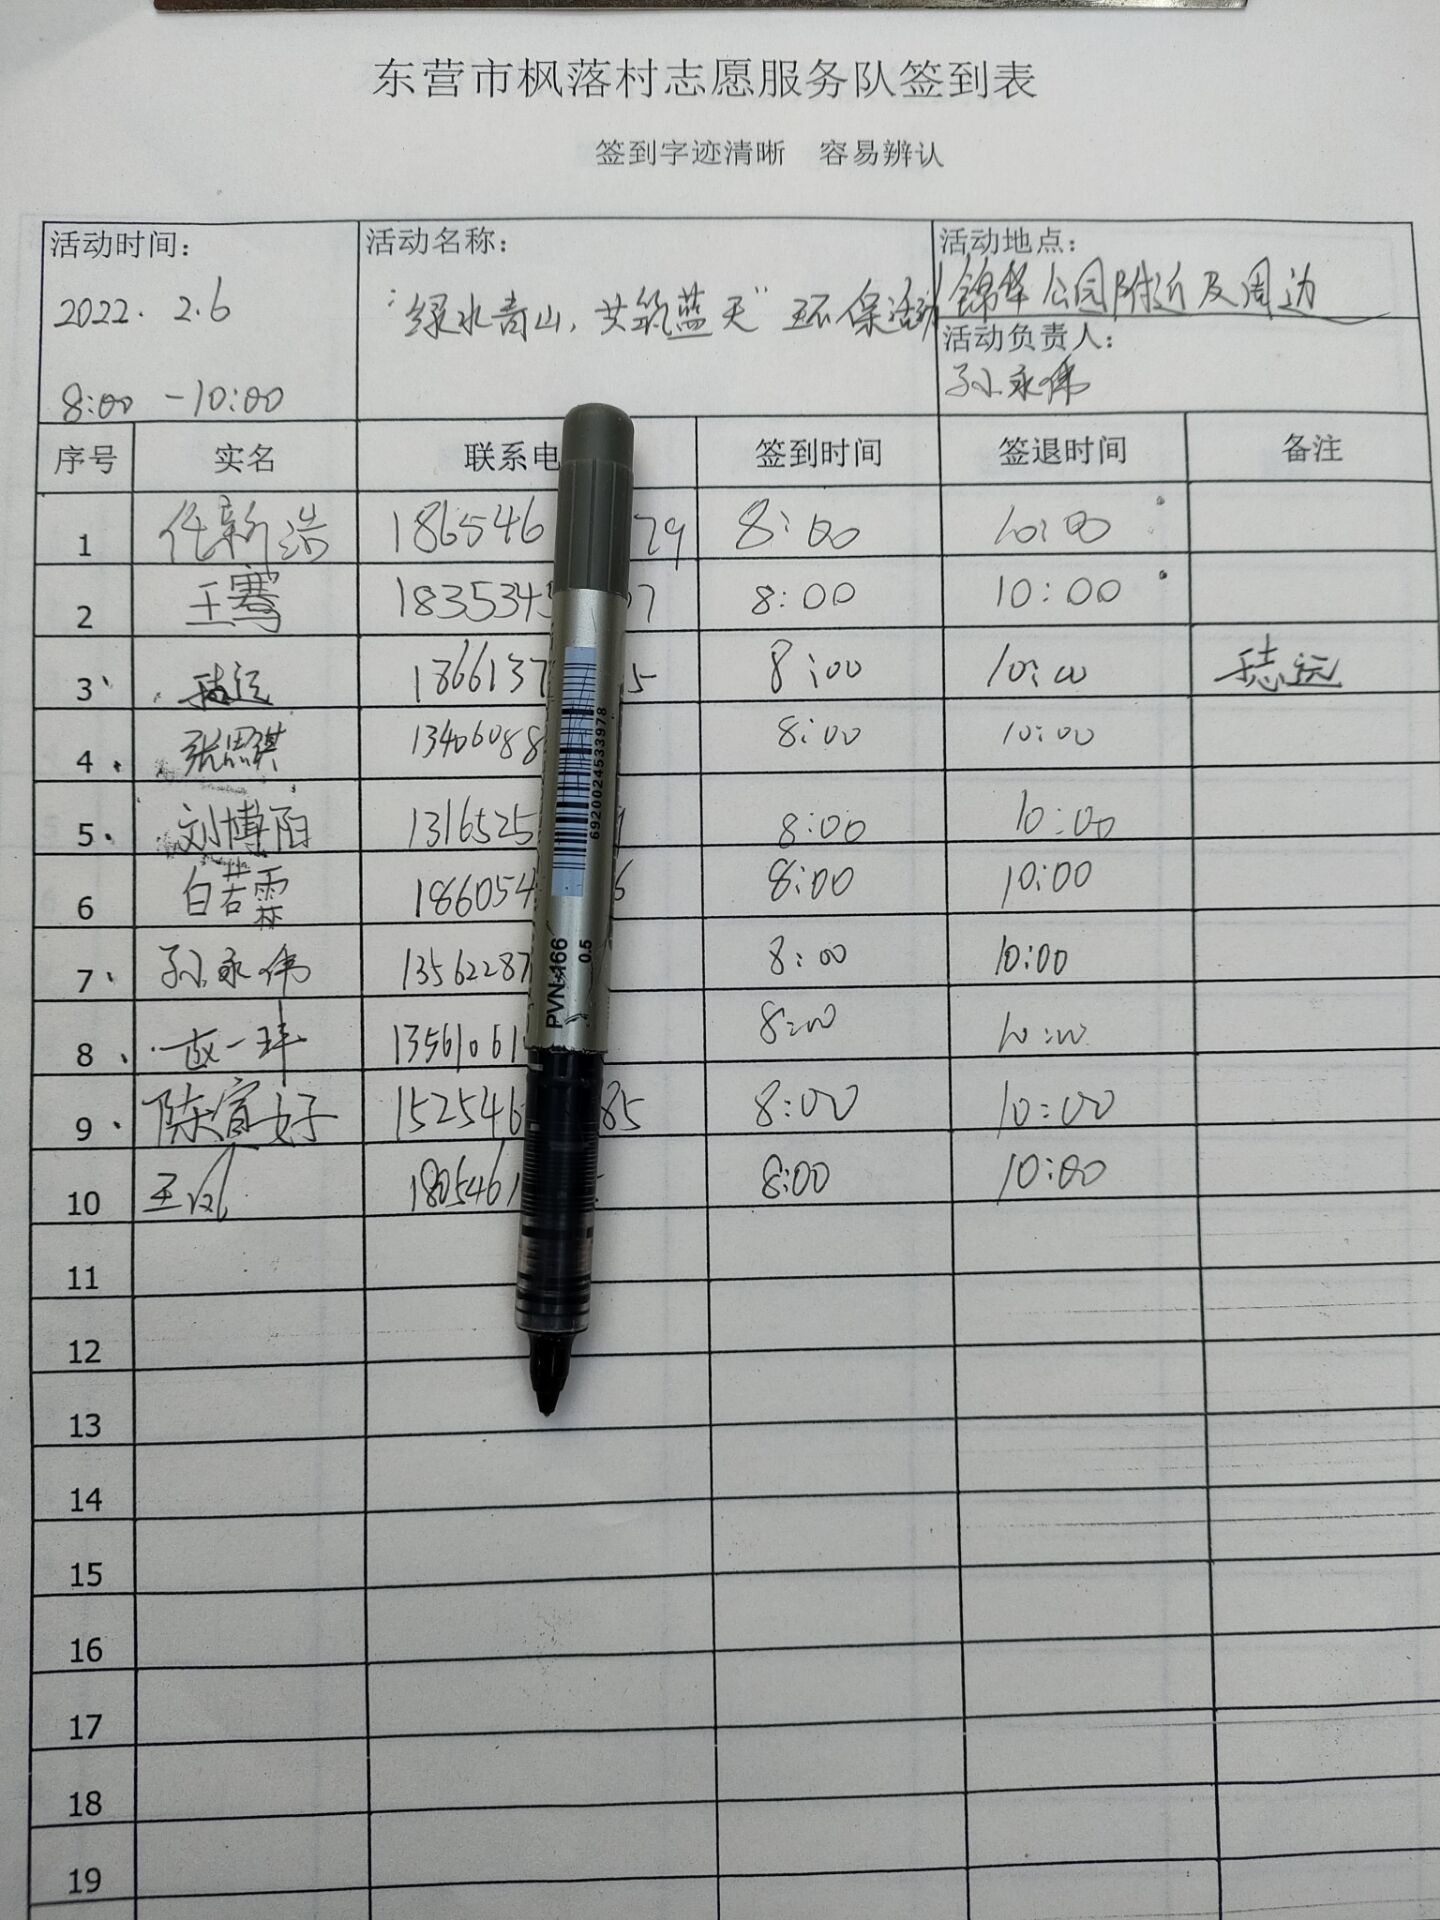 东营市枫落村志愿服务队签到表
签到字迹清晰 容易辨认
活动时间：
2022. 2.6
8:00 -10:00
活动名称：
“绿水青山，共筑蓝天”环保活动
活动地点：
锦华公园附近及周边
活动负责人：
孙永伟
序号 实名 联系电 签到时间 签退时间 备注
1 任新浩 186546 79 8:00 10:00
2 王骞 1835345 07 8:00 10:00
3 1866137 5 8:00 10:00 志远
4 张思琪 13406088 8:00 10:00
5 刘博阳 1316525 8:00 10:00
6 白若霖 186054 6 8:00 10:00
7 孙永伟 13562287 8:00 10:00
8 赵一玮 13561061 8:00 10:00
9 陈宣好 152546 85 8:00 10:00
10 王凤 1805461 8:00 10:00
11
12
13
14
15
16
17
18
19
6920024533978
PVN-166
0.5